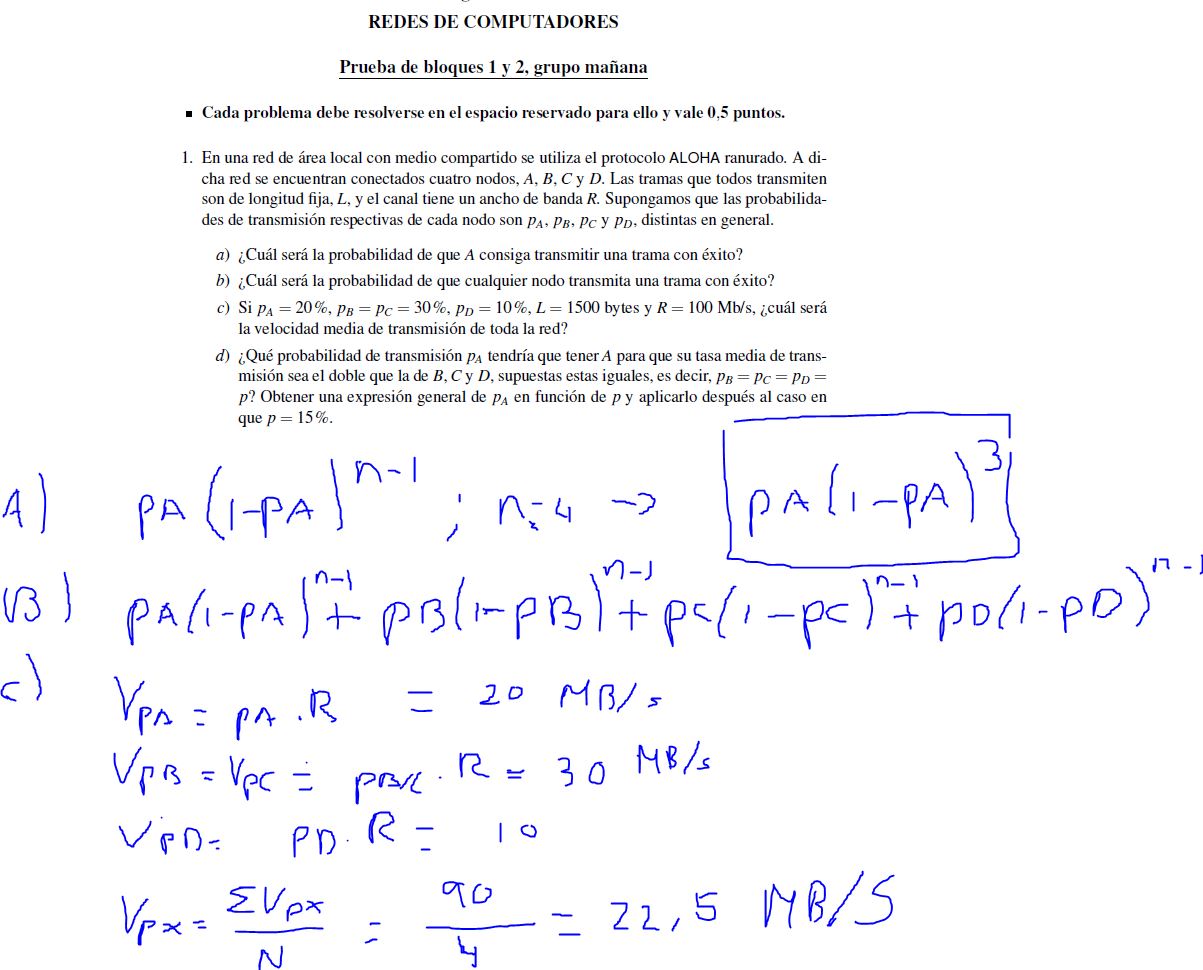 REDES DE COMPUTADORES
Prueba de bloques 1 y 2, grupo mañana
▪ Cada problema debe resolverse en el espacio reservado para ello y vale 0,5 puntos.
1. En una red de área local con medio compartido se utiliza el protocolo ALOHA ranurado. A di-
cha red se encuentran conectados cuatro nodos, A, B, C y D. Las tramas que todos transmiten
son de longitud fija, L, y el canal tiene un ancho de banda R. Supongamos que las probabilida-
des de transmisión respectivas de cada nodo son p_A, p_B, p_C y p_D, distintas en general.
a) ¿Cuál será la probabilidad de que A consiga transmitir una trama con éxito?
b) ¿Cuál será la probabilidad de que cualquier nodo transmita una trama con éxito?
c) Si p_A = 20 %, p_B = p_C = 30 %, p_D = 10 %, L = 1500 bytes y R = 100 Mb/s, ¿cuál será
la velocidad media de transmisión de toda la red?
d) ¿Qué probabilidad de transmisión p_A tendría que tener A para que su tasa media de trans-
misión sea el doble que la de B, C y D, supuestas estas iguales, es decir, p_B = p_C = p_D =
p? Obtener una expresión general de p_A en función de p y aplicarlo después al caso en
que p = 15 %.
A) pA(1-pA)^{n-1} ; n=4 → pA(1-pA)^3
B) pA(1-pA)^{n-1} + pB(1-pB)^{n-1} + pC(1-pC)^{n-1} + pD(1-pD)^{n-1}
c) V_{PA} = pA . R = 20 MB/s
V_{PB} = V_{PC} = pB/C . R = 30 MB/s
V_{PD} = PD . R = 10
V_{PX} = ΣV_{PX}/N = 90/4 = 22,5 MB/S